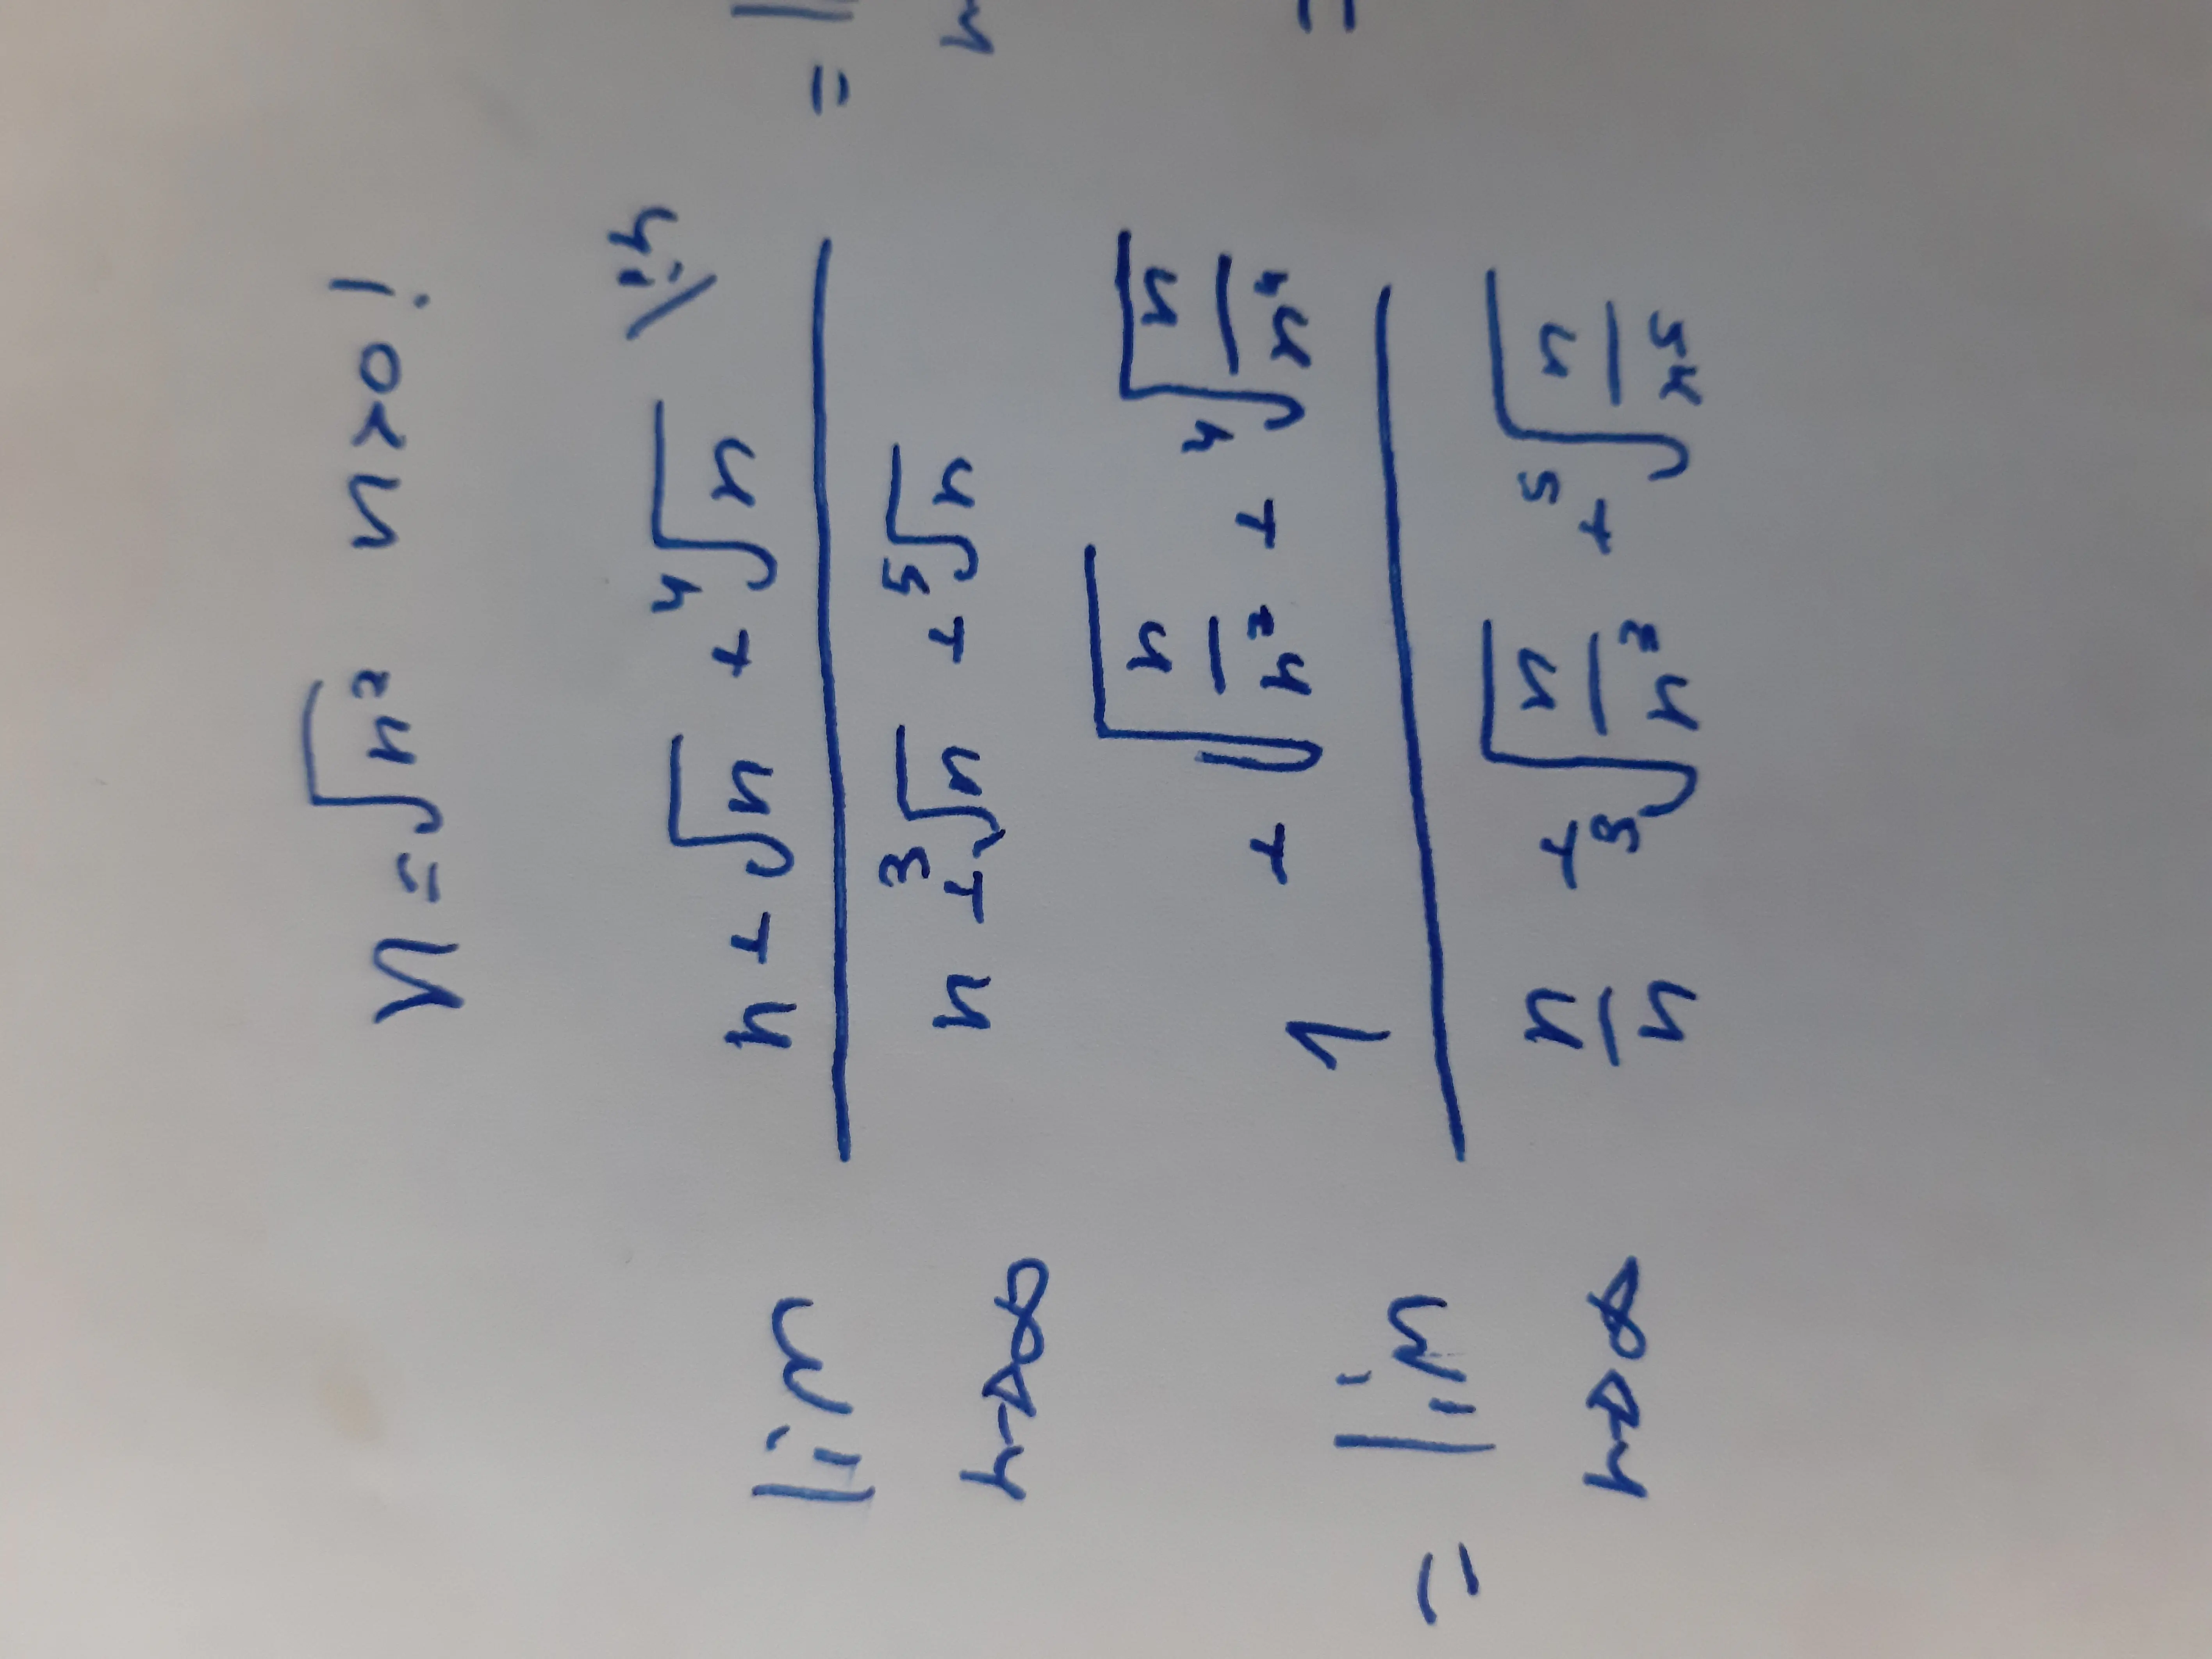 n = √n² n > 0!
lim n→∞ (n + √n + ⁴√n) / (n + ³√n + ⁵√n) /:n =
= lim n→∞ (1 + √(n/n²) + ⁴√(n/n⁴)) / (n/n + ³√(n/n³) + ⁵√(n/n⁵)) =